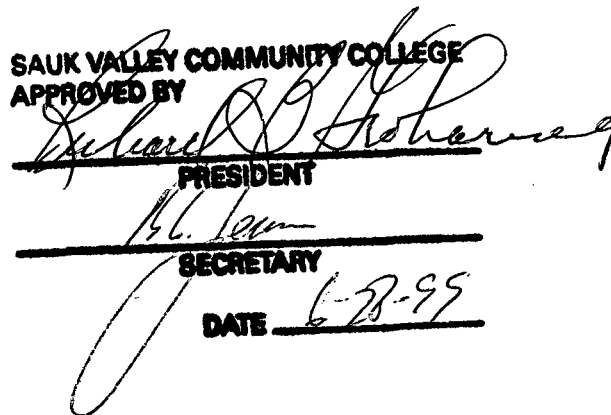 SAUK VALLEY COMMUNITY COLLEGE
APPROVED BY
Richard
PRESIDENT
SECRETARY
DATE 6-28-99